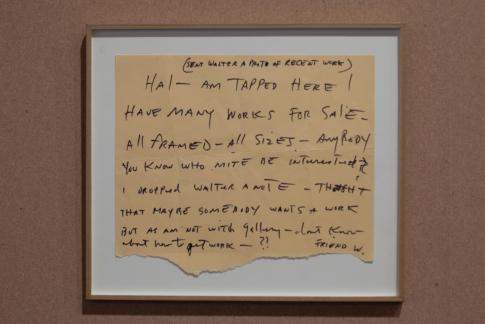 (SENT WALTER A PHOTO OF RECENT WORK)
HAL — AM TAPPED HERE !
HAVE MANY WORKS FOR SALE —
All FRAMED — All SIZES — ANYBODY
YOU KNOW WHO MITE BE interested
I DROPPED WALTER A NOTE —
THAT MAYBE SOMEBODY WANTS A WORK
BUT AS AM NOT WITH GAllery — dont Know
about how to get work — ??
FRIEND W.